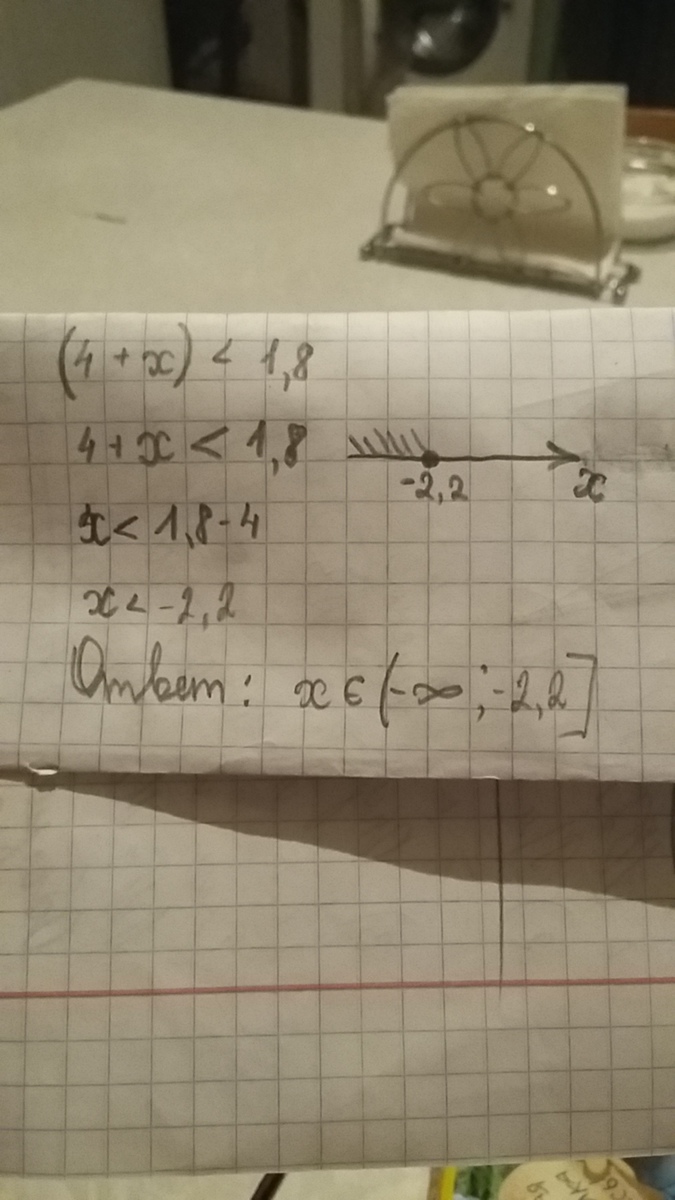 (4 + x) < 1,8
4 + x < 1,8
-2,2 x
x < 1,8 - 4
x < -2,2
Ответ: x ∈ (-∞; -2,2]